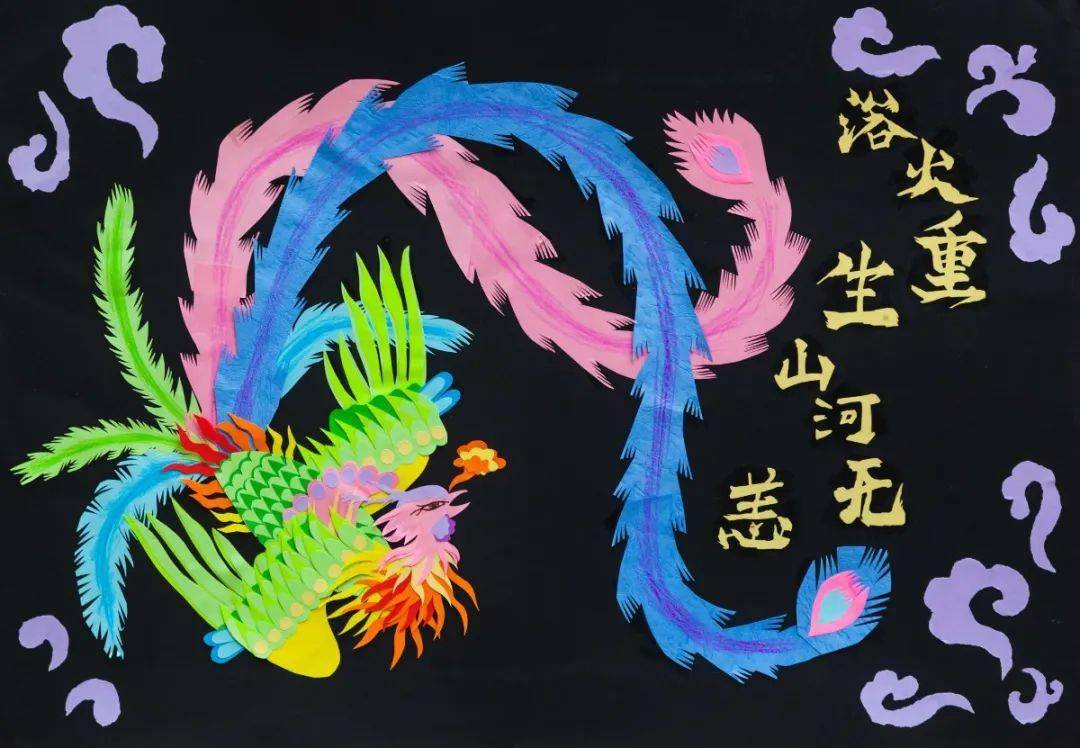 浴火重生
山河无恙